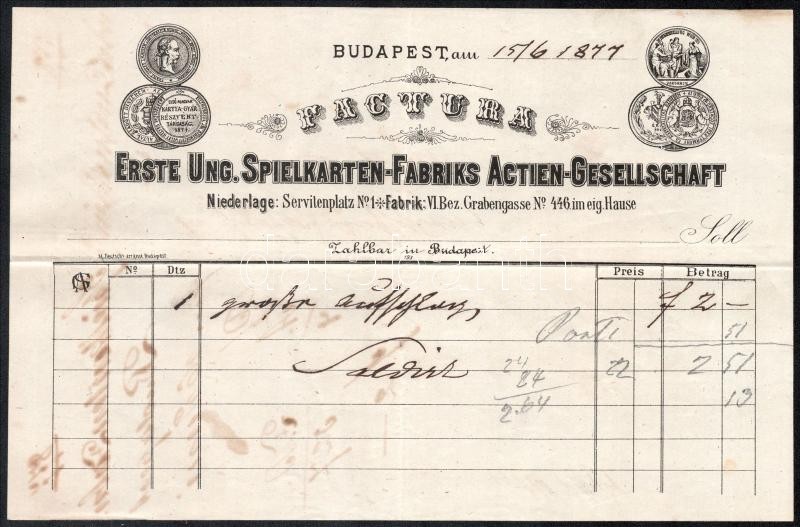 BUDAPEST, am 15/6 1877
FACTURA
ELSŐ MAGYAR
KÁRTYA-GYÁR
RÉSZVÉNY
TÁRSASÁG
ERSTE UNG. SPIELKARTEN-FABRIKS ACTIEN-GESELLSCHAFT
Niederlage: Servitenplatz No 1 Fabrik: VI. Bez. Grabengasse No 446 im eig. Hause
Soll
Zahlbar in Budapest.
No Dtz Preis Betrag
1 große Aufschlag f 2 –
Porto 51
Saldirt 22 2 51
24
84
2.64
13